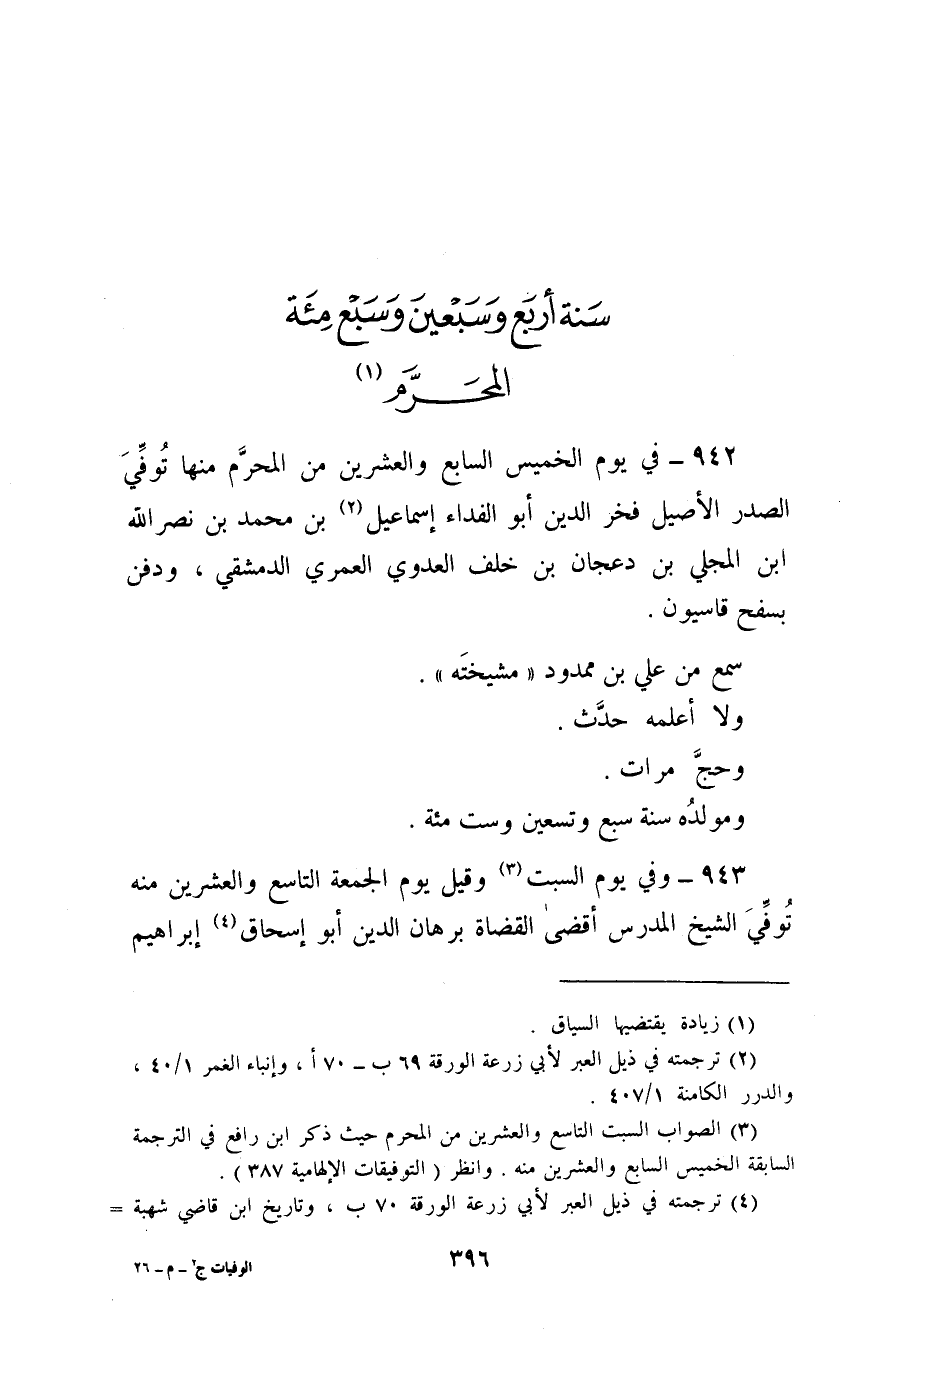 سَنة أربَع وَسَبْعينَ وَسَبْع مِئَة
المحَـرَّم (١)
٩٤٢ ـ في يوم الخميس السابع والعشرين من المحرَّم منها تُوفِّيَ
الصدر الأصيل فخر الدين أبو الفداء إسماعيل(٢) بن محمد بن نصر الله
ابن المجلي بن دعجان بن خلف العدوي العمري الدمشقي ، ودفن
بسفح قاسيون .
سمع من علي بن ممدود « مشيختَه » .
ولا أعلمه حدَّث .
وحجَّ مرات .
ومولدُه سنة سبع وتسعين وست مئة .
٩٤٣ ـ وفي يوم السبت(٣) وقيل يوم الجمعة التاسع والعشرين منه
تُوفِّيَ الشيخ المدرس أقضىٰ القضاة برهان الدين أبو إسحاق(٤) إبراهيم
(١) زيادة يقتضيها السياق .
(٢) ترجمته في ذيل العبر لأبي زرعة الورقة ٦٩ ب ـ ٧٠ أ ، وإنباء الغمر ٤٠/١ ،
والدرر الكامنة ٤٠٧/١ .
(٣) الصواب السبت التاسع والعشرين من المحرم حيث ذكر ابن رافع في الترجمة
السابقة الخميس السابع والعشرين منه . وانظر ( التوفيقات الإلهامية ٣٨٧ ) .
(٤) ترجمته في ذيل العبر لأبي زرعة الورقة ٧٠ ب ، وتاريخ ابن قاضي شهبة =
٣٩٦
الوفيات ج٢ ـ م ـ ٢٦